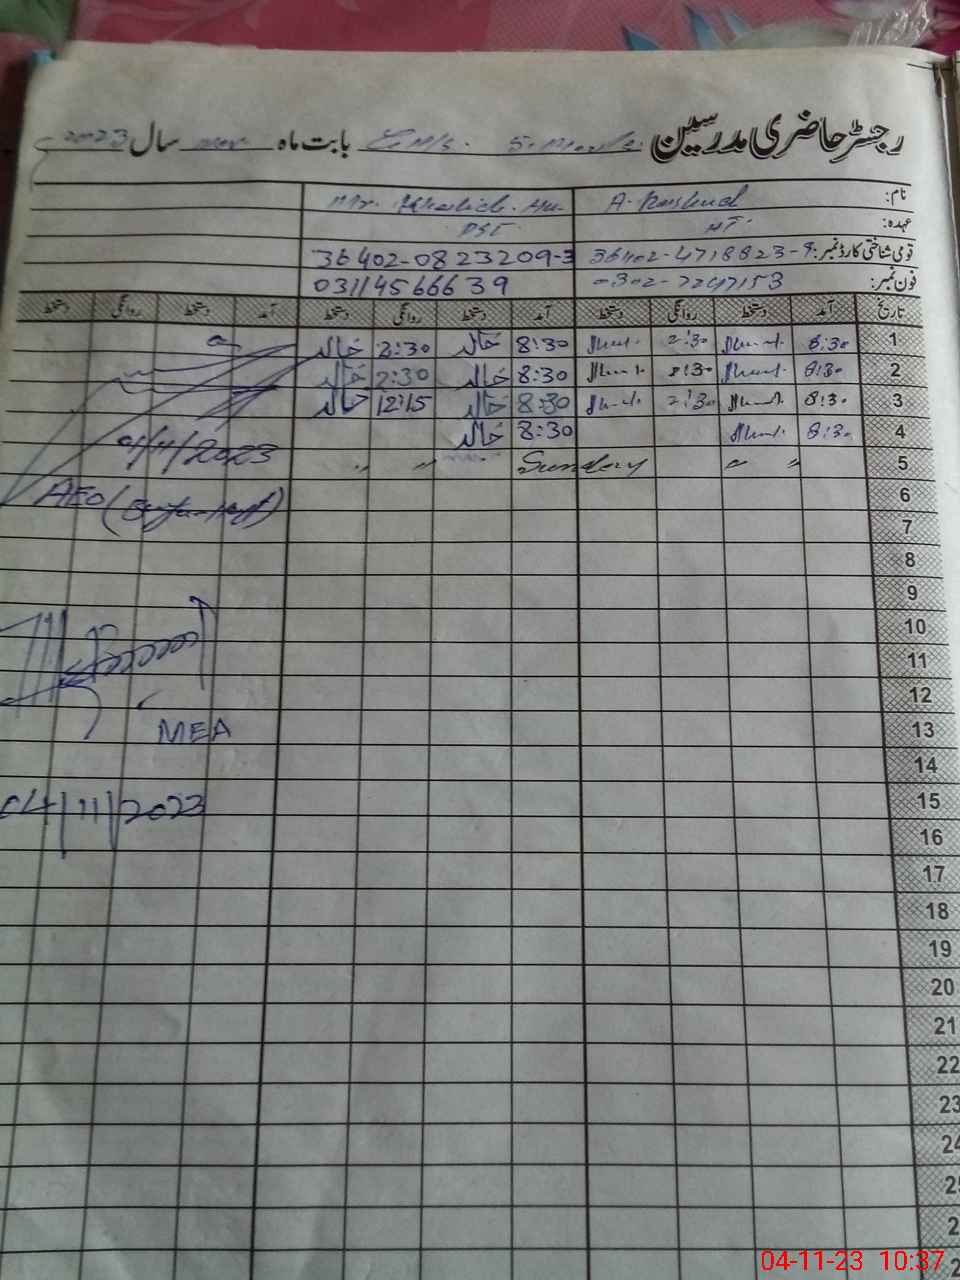 رجسٹر حاضری مدرسین بابت ماہ Nov. سال 2023
نام: A. Rashid Mr. Khalid
عہدہ: HT. PST.
قومی شناختی کارڈ نمبر: 36402-4718823-9 36402-0823209-3
فون نمبر: 0302-7247153 03114566639
تاریخ آمد دستخط روانگی دستخط آمد دستخط روانگی دستخط آمد دستخط روانگی دستخط
1 8:30 2:30 8:30 خالد 2:30 خالد
2 8:30 2:30 8:30 خالد 2:30 خالد
3 8:30 2:30 8:30 خالد 12:15 خالد
4 8:30 8:30 خالد
5 " " Sunday " "
04/11/2023
6
AEO
7
8
9
10
11
12
13
MEA
14
15
04/11/2023
16
17
18
19
20
21
22
23
24
04-11-23 10:37